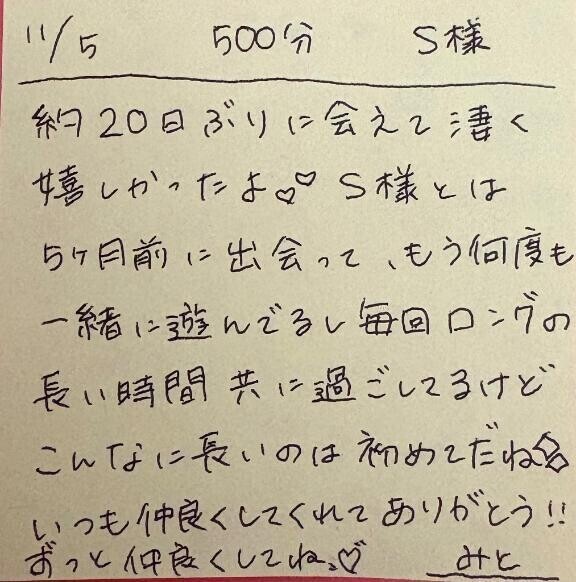 11/5 500分 S様
約20日ぶりに会えて凄く
嬉しかったよ♡♡ S様とは
5ヶ月前に出会って、もう何度も
一緒に遊んでるし毎回ロングの
長い時間共に過ごしてるけど
こんなに長いのは初めてだね
いつも仲良くしてくれてありがとう!!
ずっと仲良くしてね♡
みと